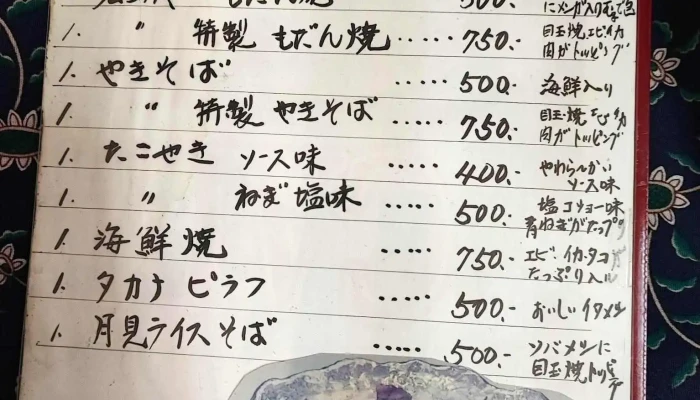 500.-
1. 〃 特製 もだん焼 ····· 750.- 目玉焼 エビ イカ 肉がトッピング
1. やきそば ····· 500.- 海鮮入り
1. 〃 特製 やきそば ····· 750.- 目玉焼 肉がトッピング
1. たこやき ソース味 ····· 400.- やわらかい ソース味
1. 〃 ねぎ 塩味 ····· 500.- 塩コショー味 青ねぎがたっプリ
1. 海鮮焼 ····· 750.- エビ・イカ・タコが たっぷり入ル
1. タカナ ピラフ ····· 500.- おいしいイタメシ
1. 月見ライスそば ····· 500.- ソバメシに 目玉焼トッピング